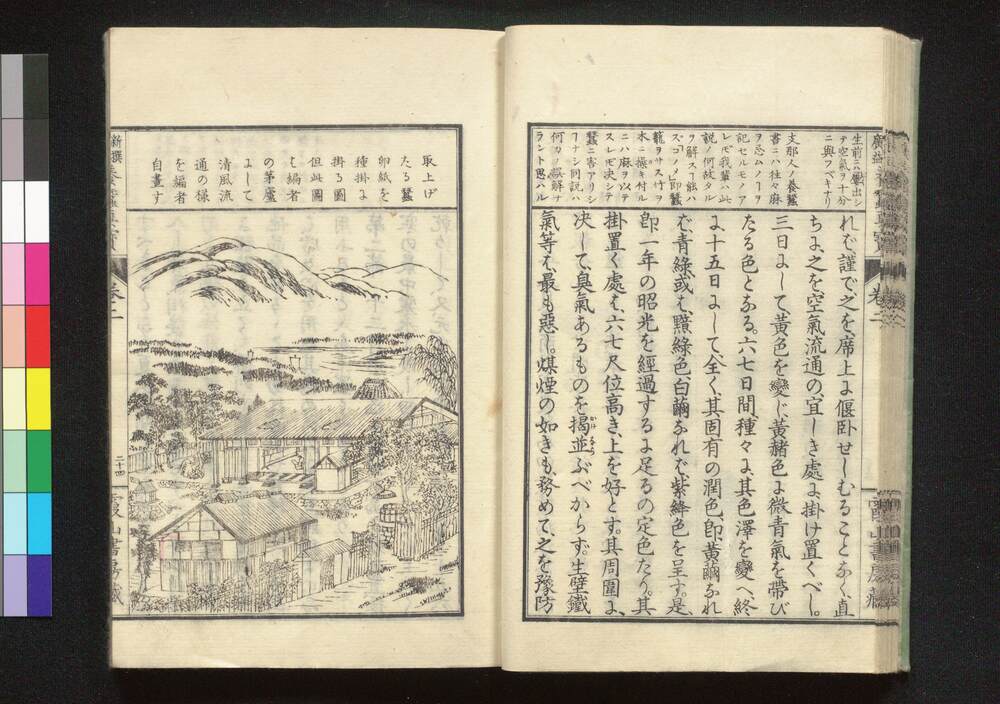 生前ニ觸出シ
テ空氣ヲ十分
ニ與フベキナリ
支那人ノ養蠶
書ニハ往々麻
ヲ忌ムノヿヲ
記セルモノア
レ𪜈我輩ハ此
説ノ何故タル
ヲ解スル能ハ
籠ヲサス竹ヲ
木ニ掻キ付ル
ニハ麻ヲ以テ
スレ𪜈决シテ
蠶ニ害アリシ
ヿナシ同説ハ
何カノ誤解ナ
ラント思ハル
れば、謹で之を席上に偃卧せしむることなく、直
ちに、之を空氣流通の、宜しき處に、掛け置くべし。
三日にして、黄色を變じ、黄赭色に微青氣を帶び
たる色となる。六七日間、種々に其色澤を變へ、終
に十五日にして、全く其固有の潤色、即、黄繭なれ
ば、青綠、或は、黯綠色、白繭なれば、紫絳色を呈す。是
即、一年の昭光を經過するに足るの定色たり。其
掛置く處は、六七尺位高き、上を好とす。其周圍に、
决して、臭氣あるものを揭並ぶべからず。生壁鐵
氣等は、最も惡し。煤煙の如きも、務めて、之を豫防
卷二
取上げ
たる蠶
卵紙を
種掛に
掛る圖
但此圖
は編者
の茅廬
にして
清風流
通の樣
を編者
自畫す
卷二
二十四
霞山書房藏